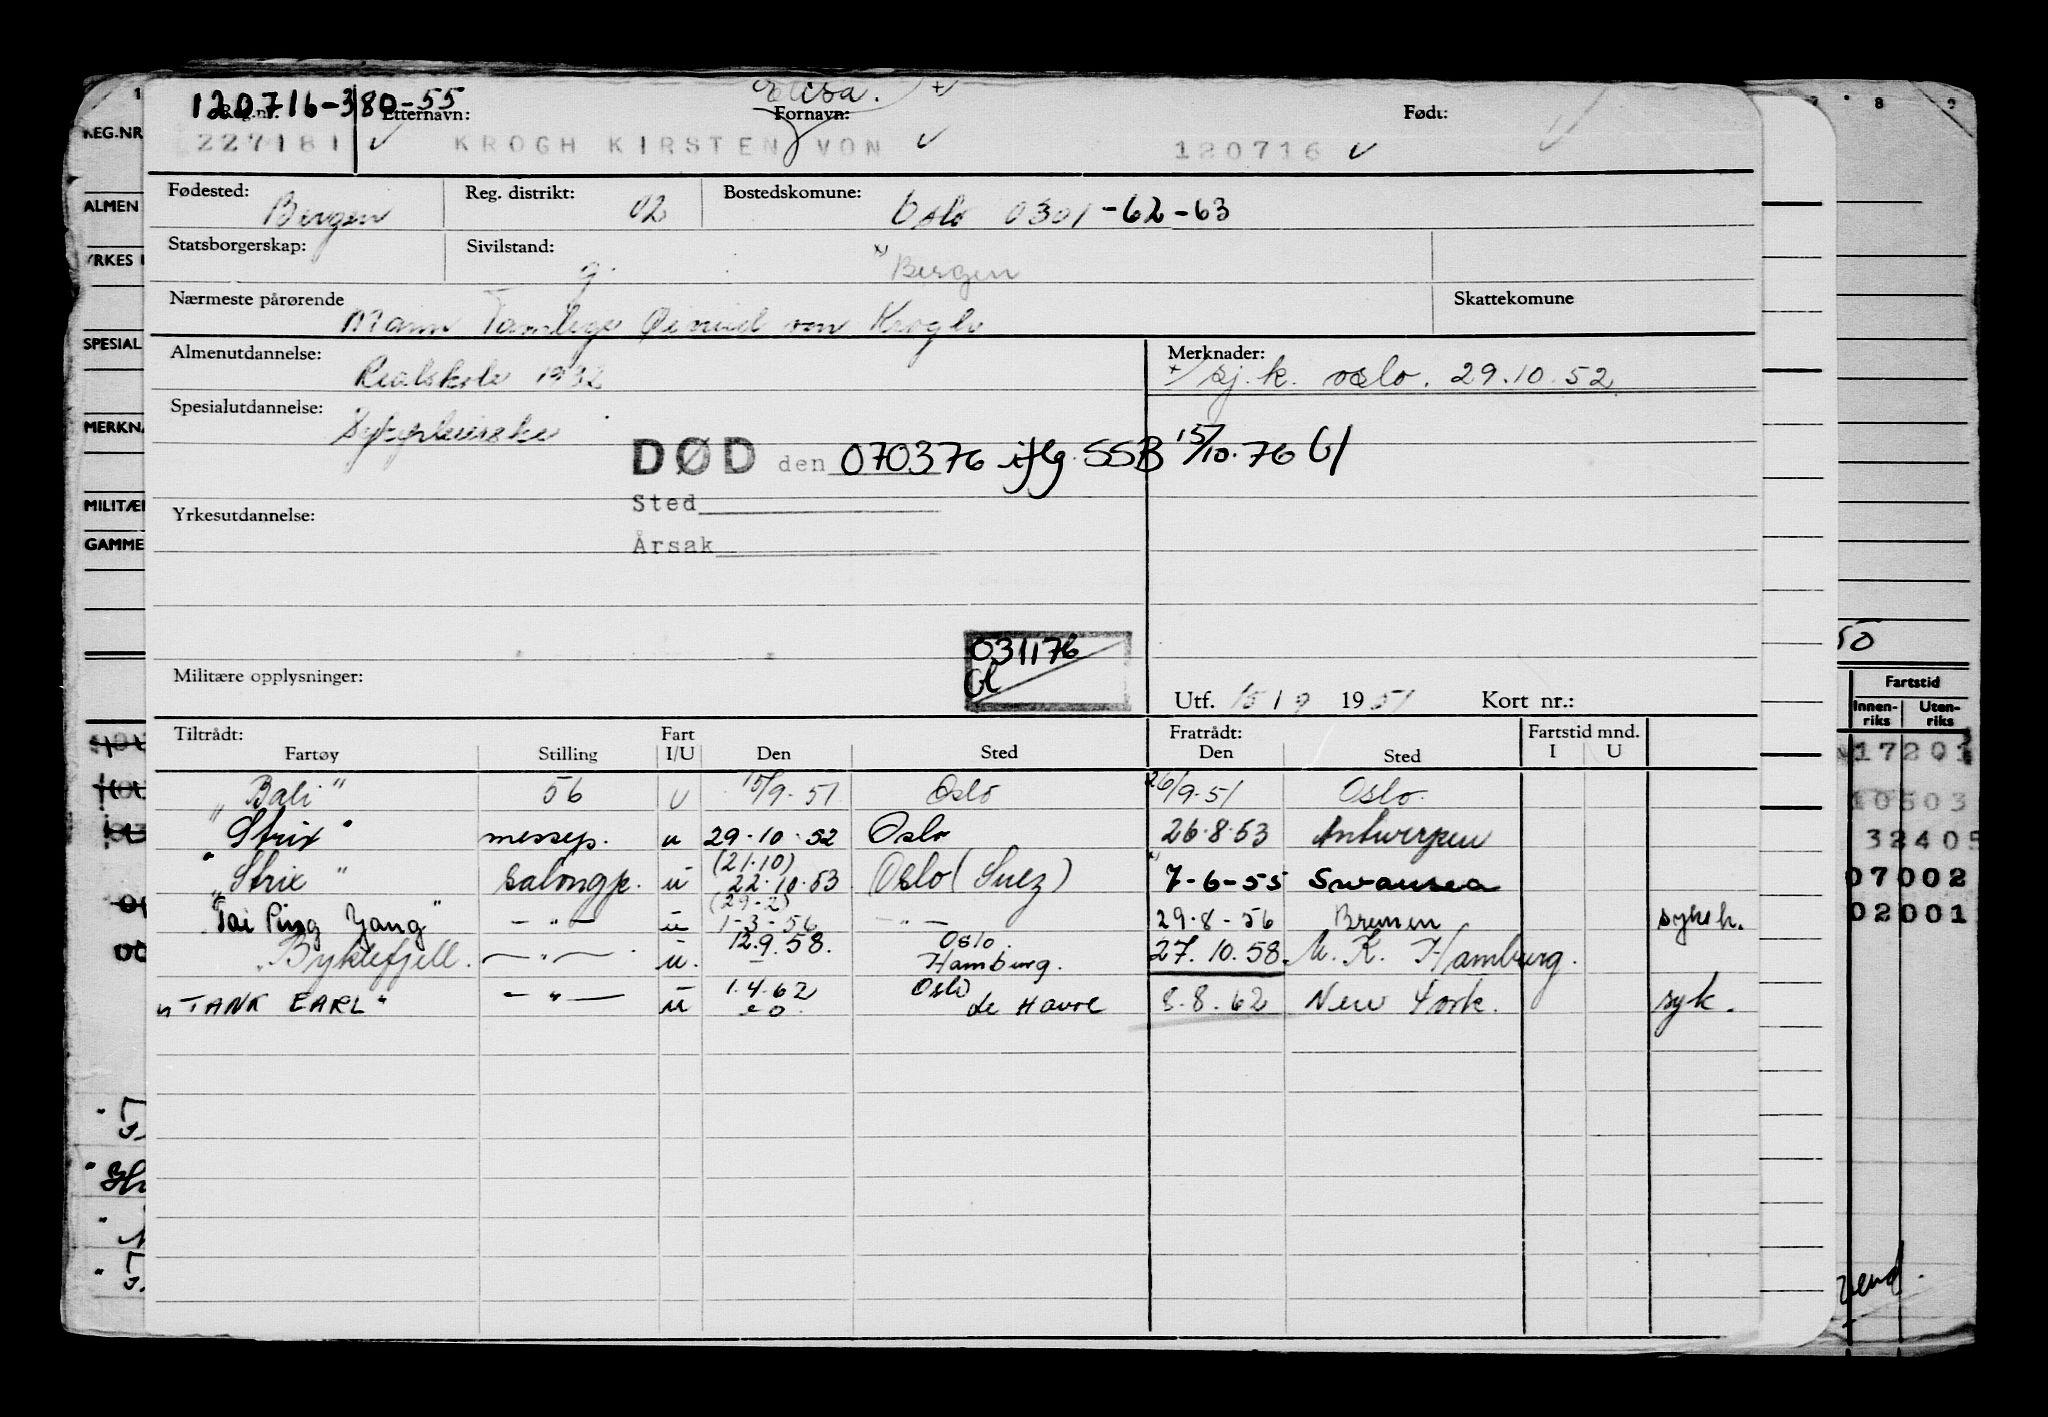 Elisa. +
120716-380-55
Reg.nr. Etternavn: Fornavn: Født:
227181 KROGH KIRSTEN VON 120716
Fødested: Bergen Reg. distrikt: 02 Bostedskomune: Oslo 0301-62-63
Statsborgerskap: Sivilstand: g. Bergen
Nærmeste pårørende Mann von Krogh Skattekomune
Almenutdannelse: Realskole 1932 Merknader: sj.k. oslo. 29.10.52
Spesialutdannelse: Sykepleierske
DØD den 070376 iflg. SSB 15/10.76
Sted
Yrkesutdannelse:
Årsak
031176
Militære opplysninger:
Utf. 15/9 1951 Kort nr.:
Tiltrådt: Fart Fratrådt: Fartstid mnd.
Fartøy Stilling I/U Den Sted Den Sted I U
"Bali" 56 U 15/9.51 Oslo 26/9.51 Oslo.
"Strix" messep. u 29.10.52 Oslo 26.8.53 Antwerpen
(21.10)
"Strix" salongp. u 22.10.53 Oslo (Suez) 7-6-55 Swansea
(29-2)
"Tai Ping Yang" -"- u 1-3-56 -"- 29.8-56 Bremen sykeh.
Oslo.
"Byklefjell. -"- u. 12.9.58. Hamburg. 27.10.58. U.K. Hamburg.
1.4.62 Oslo
"TANK EARL" -"- u Le Havre 8.8.62 New York. syk.
REG.NR
ALMEN
YRKES
SPESIAL
MERKNA
MILITÆR
GAMME
8 9
50
Fartstid
Innen-riks Uten-riks
17201
10503
32405
07002
02001
vend.